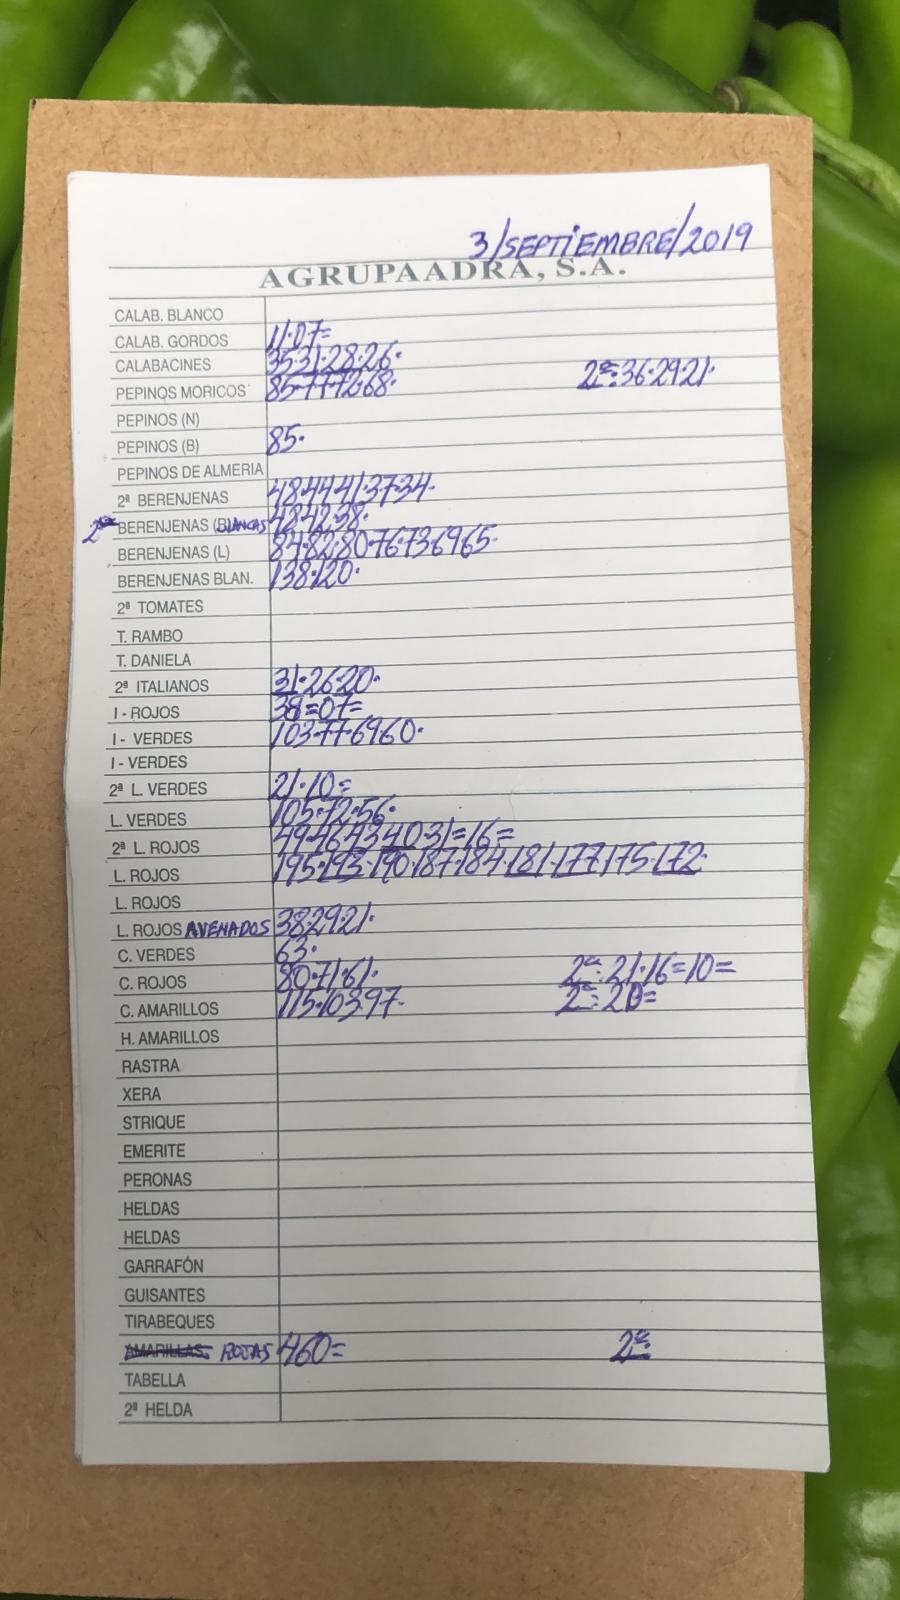 3/SEPTIEMBRE/2019
AGRUPAADRA, S.A.
CALAB. BLANCO
CALAB. GORDOS 11·07=
CALABACINES 35·31·28·26·
PEPINOS MORICOS 85·77·72·68· 2ª:36·29·21·
PEPINOS (N)
PEPINOS (B) 85·
PEPINOS DE ALMERIA
2ª BERENJENAS 48·44·41·37·34·
2ª BERENJENAS (BLANCAS 48·42·38·
BERENJENAS (L) 84·82·80·76·73·69·65·
BERENJENAS BLAN. 138·120·
2ª TOMATES
T. RAMBO
T. DANIELA
2ª ITALIANOS 31·26·20·
I - ROJOS 38=07=
I - VERDES 103·77·69·60·
I - VERDES
2ª L. VERDES 21·10=
L. VERDES 105·72·56·
2ª L. ROJOS 49·46·43·40·31=16=
L. ROJOS 195·193·190·187·184·181·177·175·172·
L. ROJOS
L. ROJOS AVENADOS 38·29·21·
C. VERDES 63·
C. ROJOS 80·71·61· 2ª:21·16=10=
C. AMARILLOS 115·103·97· 2ª:20=
H. AMARILLOS
RASTRA
XERA
STRIQUE
EMERITE
PERONAS
HELDAS
HELDAS
GARRAFÓN
GUISANTES
TIRABEQUES
AMARILLAS ROJAS 460= 2ª:
TABELLA
2ª HELDA